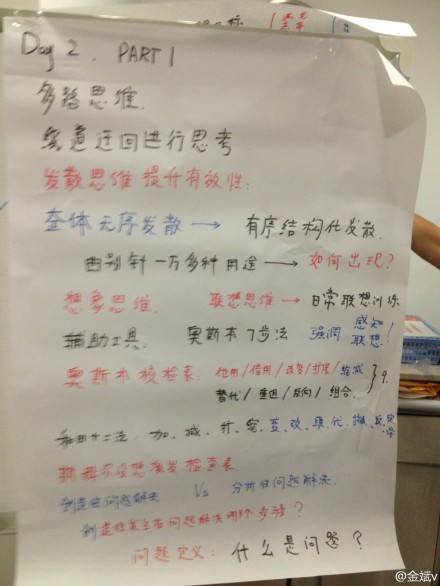 Day 2. PART 1
多路思维.
绕道迂回进行思考
发散思维 提升有效性:
整体无序发散 → 有序结构化发散.
曲别针 一万多种用途 → 如何出现?
想象思维. 联想思维 → 日常联想训练
辅助工具. 奥斯本7步法 强调 感知 联想!
奥斯本检核表. 他用/借用/改变/扩大/缩减
替代/重组/反向/组合 } 9.
和田十二法. 加、减、扩、变、改、联、代、搬、反、定
学
创造性问题解决 Vs 分析性问题解决.
创造性发生在问题解决哪个步骤?
问题定义: 什么是问题?
@金斌v